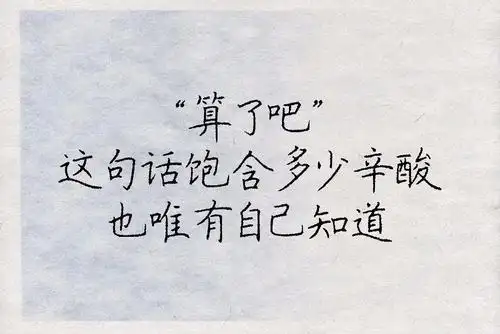 “算了吧”
这句话饱含多少辛酸
也唯有自己知道